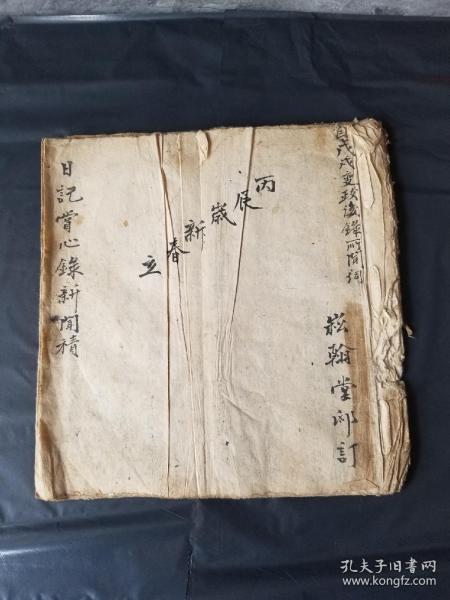 自戊戌变政後錄所闻词
崧翰堂邱訂
丙辰歲新春立
日記賞心錄新聞積
孔夫子旧书网
www.kongfz.com